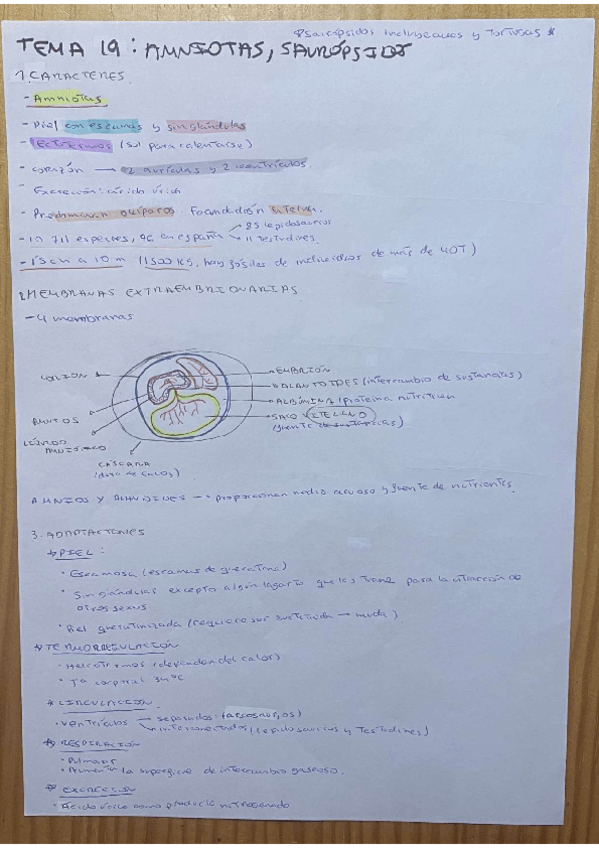 *Saurópsidos incluye aves y tortugas *
TEMA 19: AMNIOTAS, SAURÓPSIDOS
1. CARACTERES
- Amniotas
- Piel con escamas y sin glándulas
- Ectotermos (sol para calentarse)
- corazón → 2 aurículas y 2 ventrículos.
- Excreción: ácido úrico
- Predominan ovíparos. Fecundación interna.
- especies, 96 en españa 85 lepidosaurios
11 testudines
- 1'5cm a 10 m (1500 kg, hay fósiles de individuos de más de 40T)
2. MEMBRANAS EXTRAEMBRIONARIAS
- 4 membranas
CORION
AMNIOS
LÍQUIDO
AMNIÓTICO
CÁSCARA
(dura de CaCO3)
EMBRIÓN
ALANTOIDES (intercambio de sustancias)
ALBÚMINA (proteína nutrición
SACO VITELINO
(fuente de sustancias)
AMNIOS Y → proporcionan medio acuoso y fuente de nutrientes.
3. ADAPTACIONES
PIEL:
• Escamosa (escamas de queratina)
• Sin glándulas excepto algún lagarto que las tiene para la atracción de
otros sexos
• Piel queratinizada (requiere ser sustituida → muda)
* TERMORREGULACIÓN
• (dependen del calor)
• Tª corporal 34ºC
* CIRCULACIÓN
• ventrículos separados
interconectados (lepidosaurios y Testudines)
* RESPIRACIÓN
• Pulmonar
• Aumentan la superficie de intercambio gaseoso.
* EXCRECIÓN
• Ácido úrico como producto nitrogenado